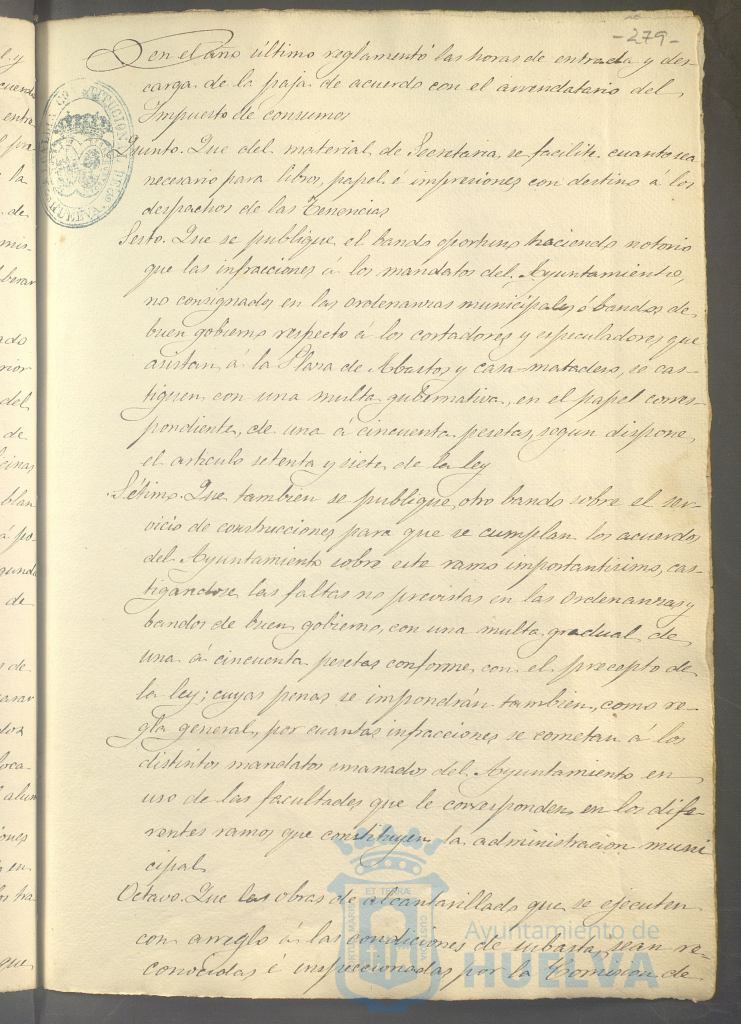 -279-
en el año último reglamentó las horas de entrada y des-
carga de la paja de acuerdo con el arrendatario del
Impuesto de consumos
Quinto. Que del material de Secretaria, se facilite cuanto sea
necesario para libros, papel é impresiones con destino á los
despachos de las Tenencias
Sesto. Que se publique el bando oportuno haciendo notorio
que las infracciones á los mandatos del Ayuntamiento,
no consignados en las ordenanzas municipales ó bandos de
buen gobierno respecto á los cortadores y especuladores que
asistan á la Plaza de Abastos y casa-matadero, se cas-
tiguen con una multa gubernativa, en el papel corres-
pondiente, de una á cincuenta pesetas, segun dispone
el articulo setenta y siete de la ley
Sétimo. Que tambien se publique otro bando sobre el ser-
vicio de construcciones para que se cumplan los acuerdos
del Ayuntamiento sobre este ramo importantisimo, cas-
tigandose, las faltas no previstas en las ordenanzas y
bandos de buen gobierno, con una multa gradual de
una á cincuenta pesetas conforme con el precepto de
la ley; cuyas penas se impondrán tambien, como re-
gla general, por cuantas infracciones se cometan á los
distintos mandatos emanados del Ayuntamiento en
uso de las facultades que le corresponden en los dife-
rentes ramos que constituyen la administracion muni
cipal
Octavo. Que las obras de alcantarillado que se ejecuten
con arreglo á las condiciones de subasta, sean re-
conocidas é inspeccionadas por la Comision de
Ayuntamiento de
HUELVA